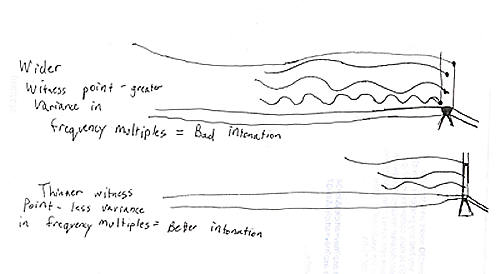 Wider
Witness point - greater
Variance in
frequency multiples = Bad intonation
Thinner witness
Point - less variance
in frequency multiples = Better intonation